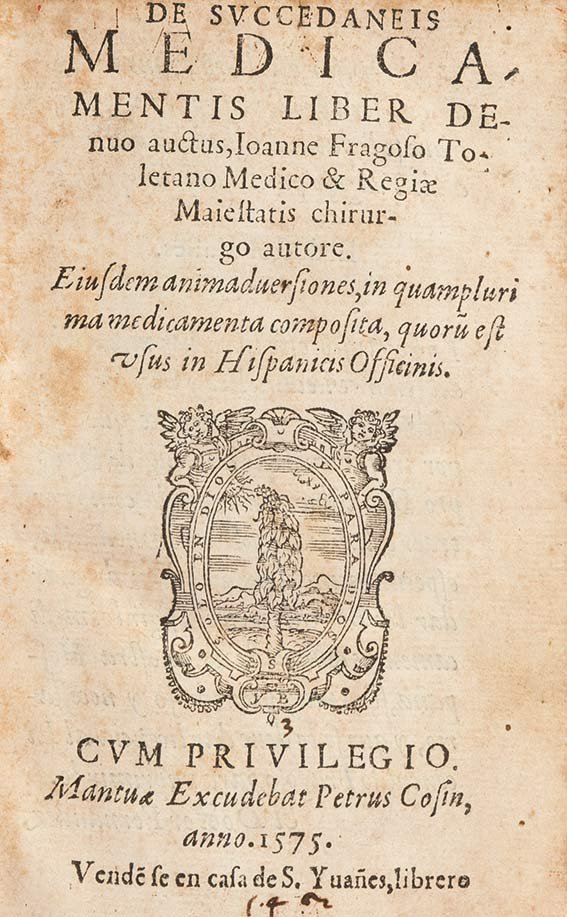 DE SVCCEDANEIS
MEDICA-
MENTIS LIBER DE-
nuo auctus, Ioanne Fragoſo To-
letano Medico & Regiæ
Maieſtatis chirur-
go autore.
Eiuſdem animaduerſiones, in quampluri
ma medicamenta compoſita, quorũ eſt
vſus in Hiſpanicis Officinis.
SOLO IN DIOS Y PARA DIOS
S
Y B
3
CVM PRIVILEGIO.
Mantuæ Excudebat Petrus Coſin,
anno. 1575.
Vendẽ ſe en caſa de S. Yuañes, librero